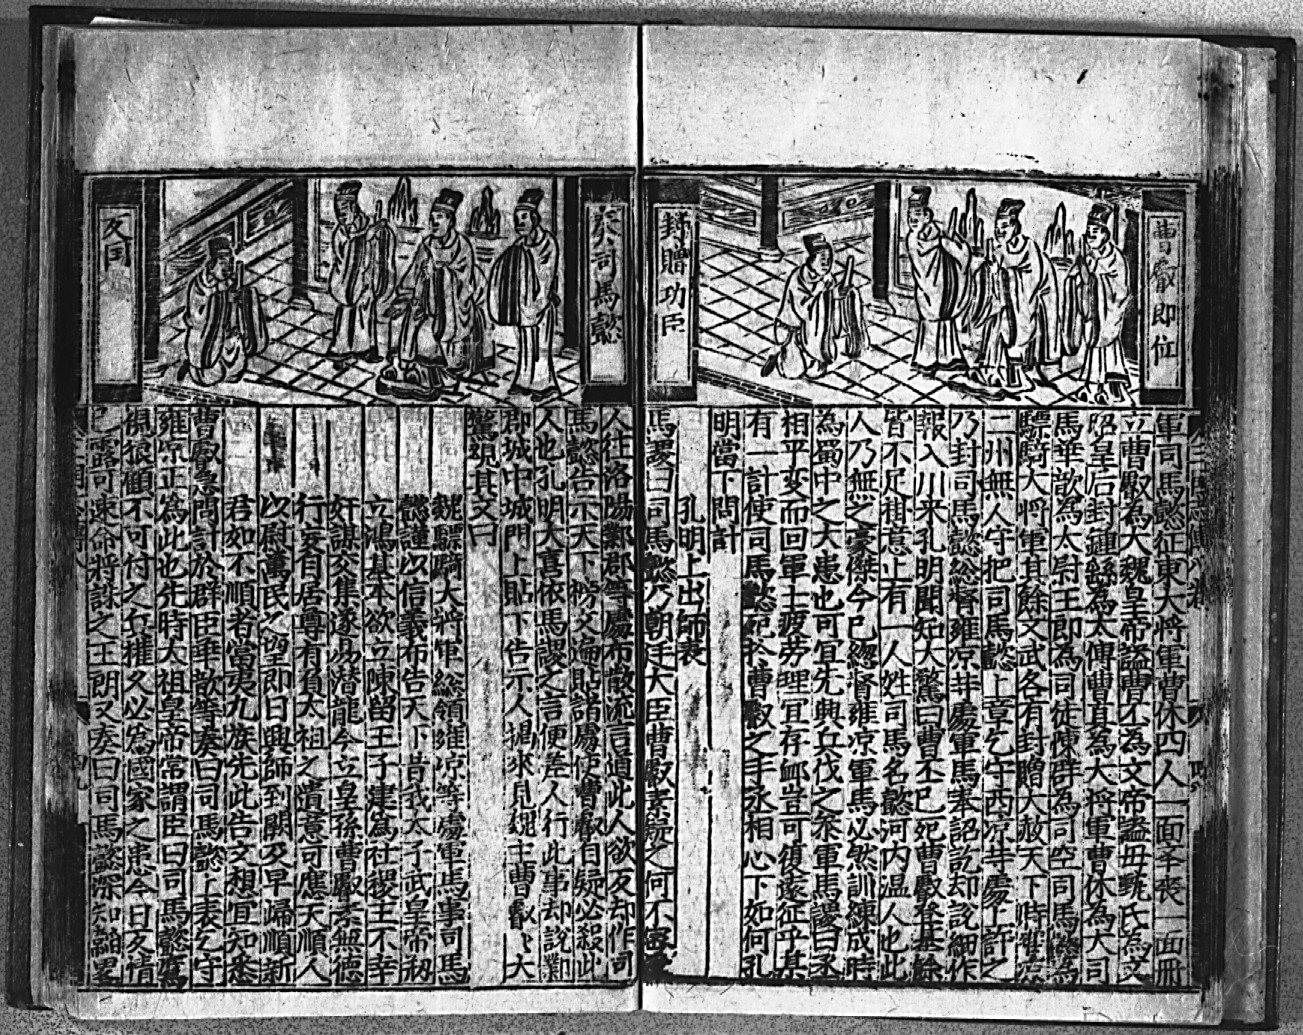 曹叡即位
封贈功臣
軍司馬懿征東大將軍曹休四人一面夲喪一面冊
立曹叡為大魏皇帝謚曹丕為文帝謚毋甄氏為文
昭皇后封鍾繇為太傅曹真為大将軍曹休為大司
馬華歆為太尉王朗為司徒陳群為司空司馬懿為
驃騎大將軍其餘文武各有封贈大赦天下時雍凉
二州無人守把司馬懿上章乞守西凉等處上許之
乃封司馬懿総督雍凉井處軍馬奉詔訖却說細作
報入川来孔明聞知大驚曰曹丕已死曹叡登基餘
皆不足掛意止有一人姓司馬名懿河内温人也此
人乃無之豪傑今已緫督雍凉軍馬必然訓練成時
為蜀中之大患也可宜先興兵伐之叅軍馬謖曰丞
相平蛮而回軍士疲劳理宜存䘏豈可復遠征乎某
有一計使司馬懿死扵曹叡之手丞相心下如何孔
明當下問計
孔明上出師表
馬謖曰司馬懿乃朝廷大臣曹叡素疑之何不密遣
奏司馬懿
反同
人往洛陽鄴郡等處布散流言道此人欲反却作司
馬懿告示天下榜文遍貼諸處使曹叡自疑必殺此
人也孔明大喜依馬謖之言便差人行此事却說鄴
郡城中城門上貼下告示人揭來見魏主曹叡叡大
驚視其文曰
魏驃騎大將軍総領雍凉等處軍馬事司馬
懿謹以信義布告天下昔我太子武皇帝刱
立鴻基本欲立陳留王子建為社稷主不幸
奸謀交集遂爲潛龍今立皇孫曹叡素無德
行妄自居尊有負太祖之遺意可應天順人
以尉萬民之望即日興師到闕及早歸順新
君如不順者當夷九族先此告文想宜知悉
曹叡急問計於群臣華歆等奏曰司馬懿上表乞守
雍凉正為此也先時太祖皇帝常謂臣曰司馬懿鷹
視狼顧不可付之兵權久必為國家之患今日反情
已露可速命将誅之王朗又奏曰司馬懿深知韜畧